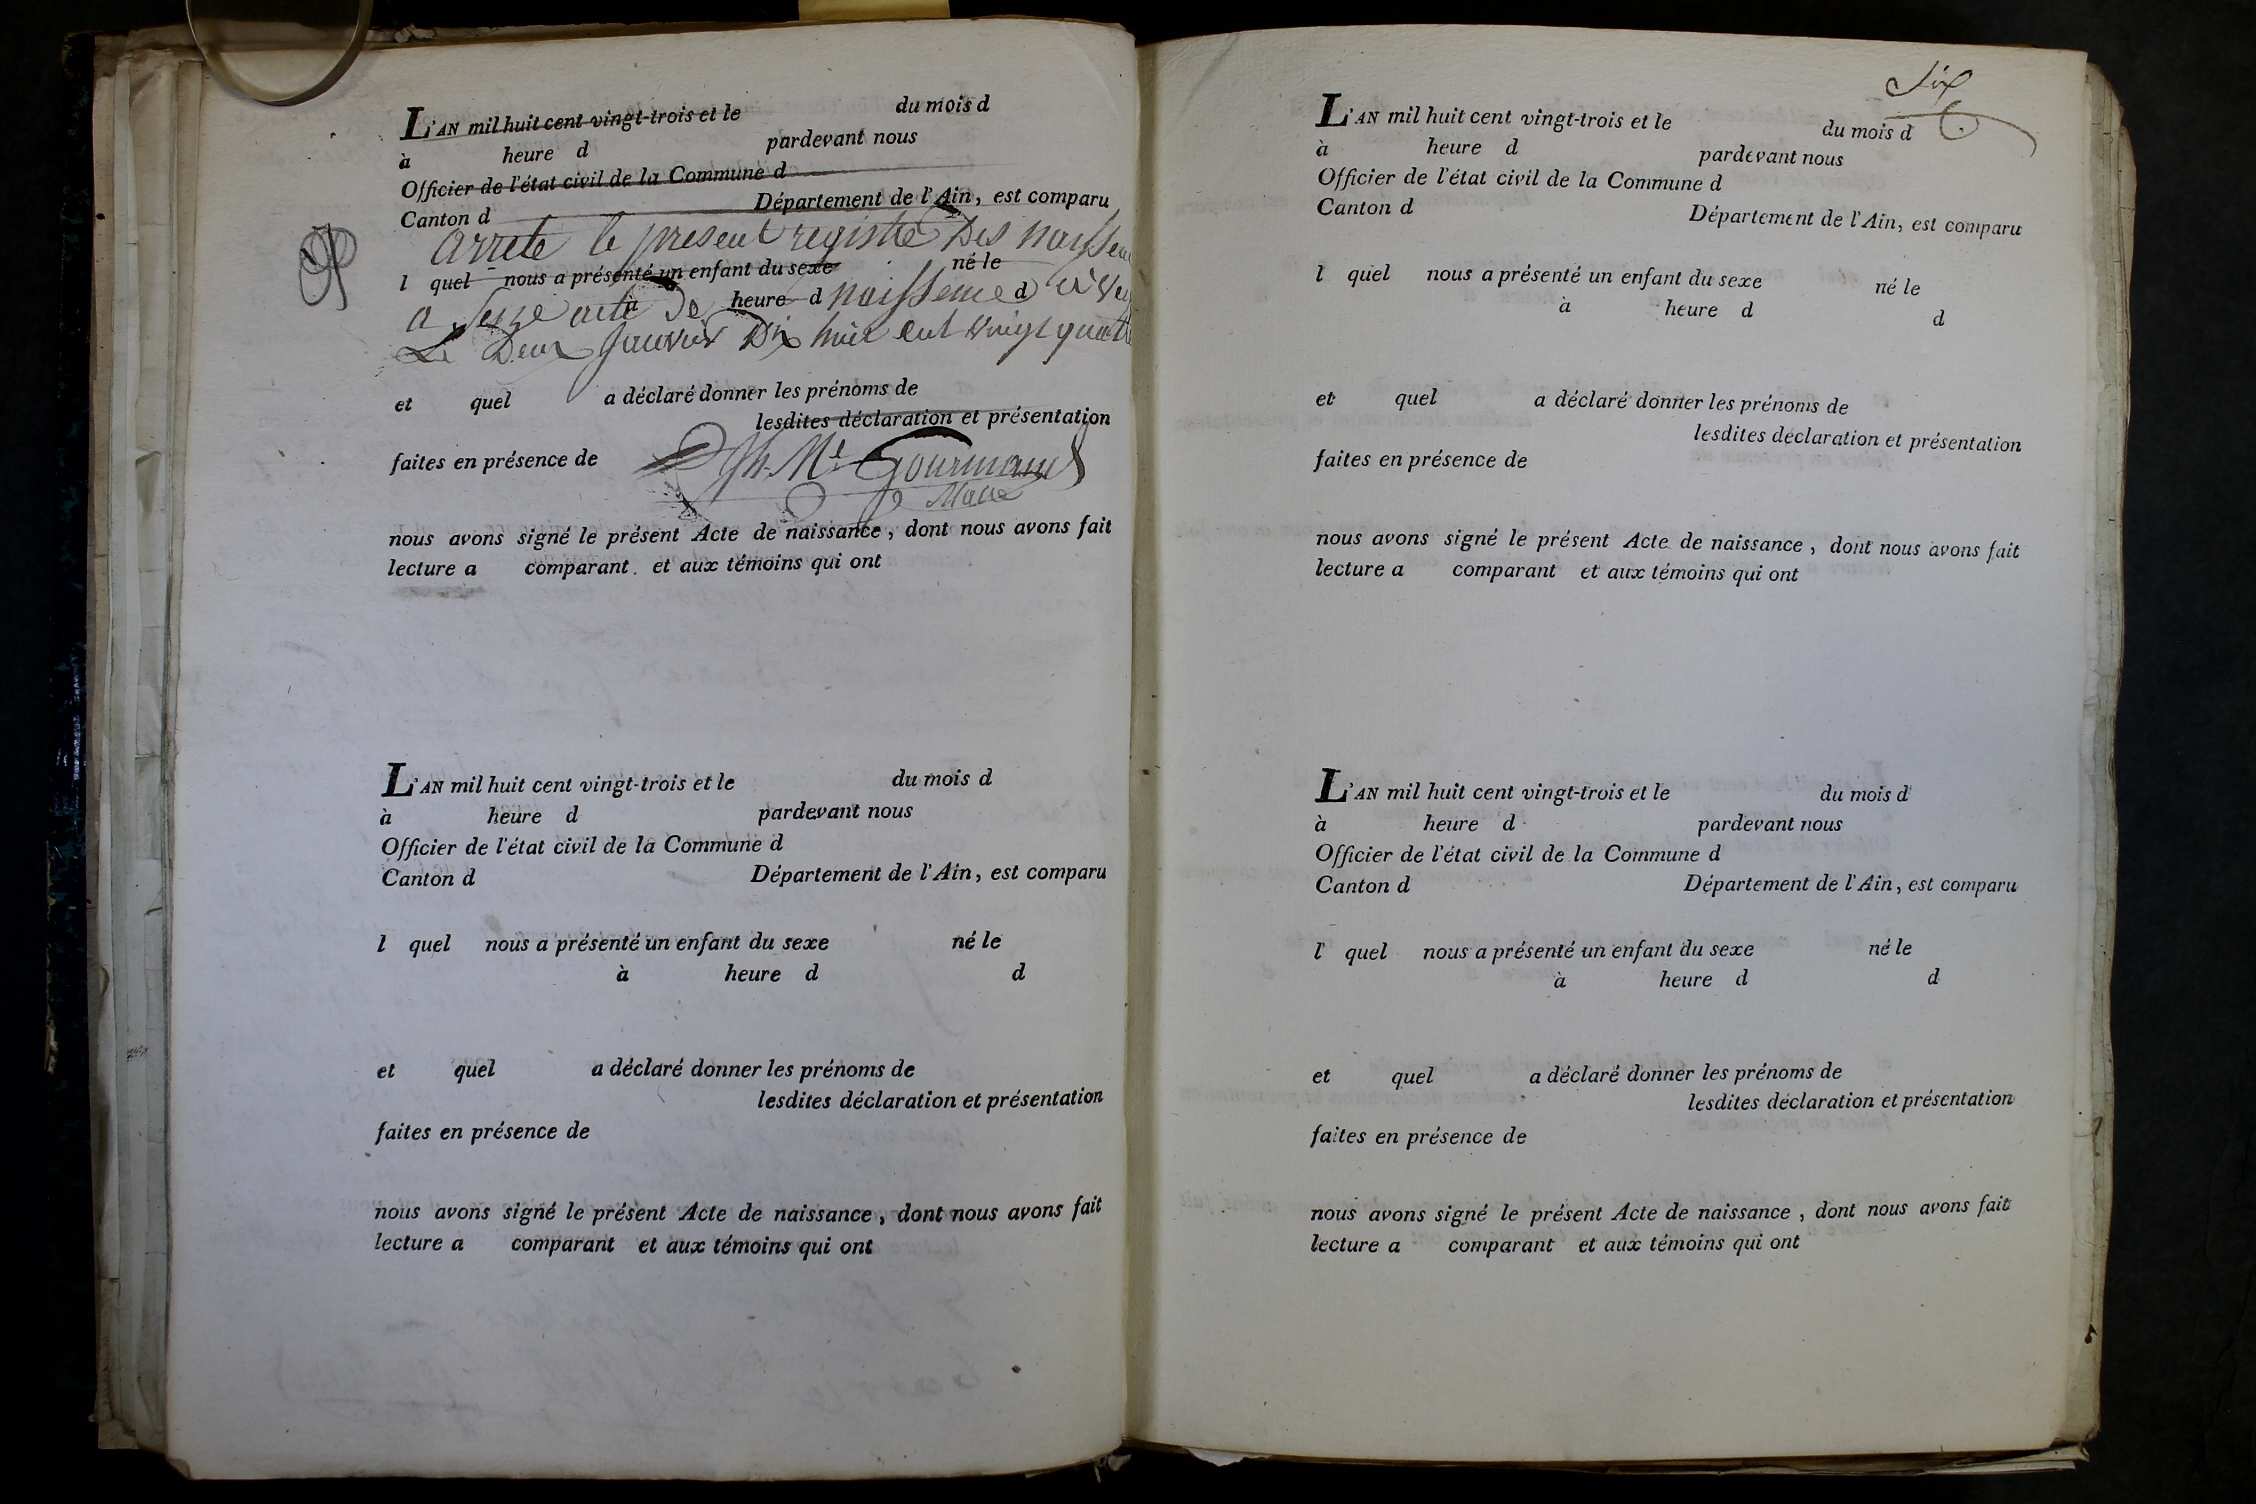 L'AN mil huit cent vingt-trois et le du mois d
à heure d pardevant nous
Officier de l'état civil de la Commune d
Canton d Département de l'Ain, est comparu
arrete le present registre Des
l quel nous a présenté un enfant du sexe né le
à heure d d
a Seize acte De naissence
Le Deux Janvier Dix huit cent vingt quatre
et quel a déclaré donner les prénoms de
lesdites déclaration et présentation
faites en présence de
Gourmand
Maire
nous avons signé le présent Acte de naissance, dont nous avons fait
lecture a comparant. et aux témoins qui ont
L'AN mil huit cent vingt-trois et le du mois d
à heure d pardevant nous
Officier de l'état civil de la Commune d
Canton d Département de l'Ain, est comparu
l quel nous a présenté un enfant du sexe né le
à heure d d
et quel a déclaré donner les prénoms de
lesdites déclaration et présentation
faites en présence de
nous avons signé le présent Acte de naissance, dont nous avons fait
lecture a comparant et aux témoins qui ont
Six
L'AN mil huit cent vingt-trois et le du mois d
à heure d pardevant nous
Officier de l'état civil de la Commune d
Canton d Département de l'Ain, est comparu
l quel nous a présenté un enfant du sexe né le
à heure d d
et quel a déclaré donner les prénoms de
lesdites déclaration et présentation
faites en présence de
nous avons signé le présent Acte de naissance, dont nous avons fait
lecture a comparant et aux témoins qui ont
L'AN mil huit cent vingt-trois et le du mois d
à heure d pardevant nous
Officier de l'état civil de la Commune d
Canton d Département de l'Ain, est comparu
l quel nous a présenté un enfant du sexe né le
à heure d d
et quel a déclaré donner les prénoms de
lesdites déclaration et présentation
faites en présence de
nous avons signé le présent Acte de naissance, dont nous avons fait
lecture a comparant et aux témoins qui ont